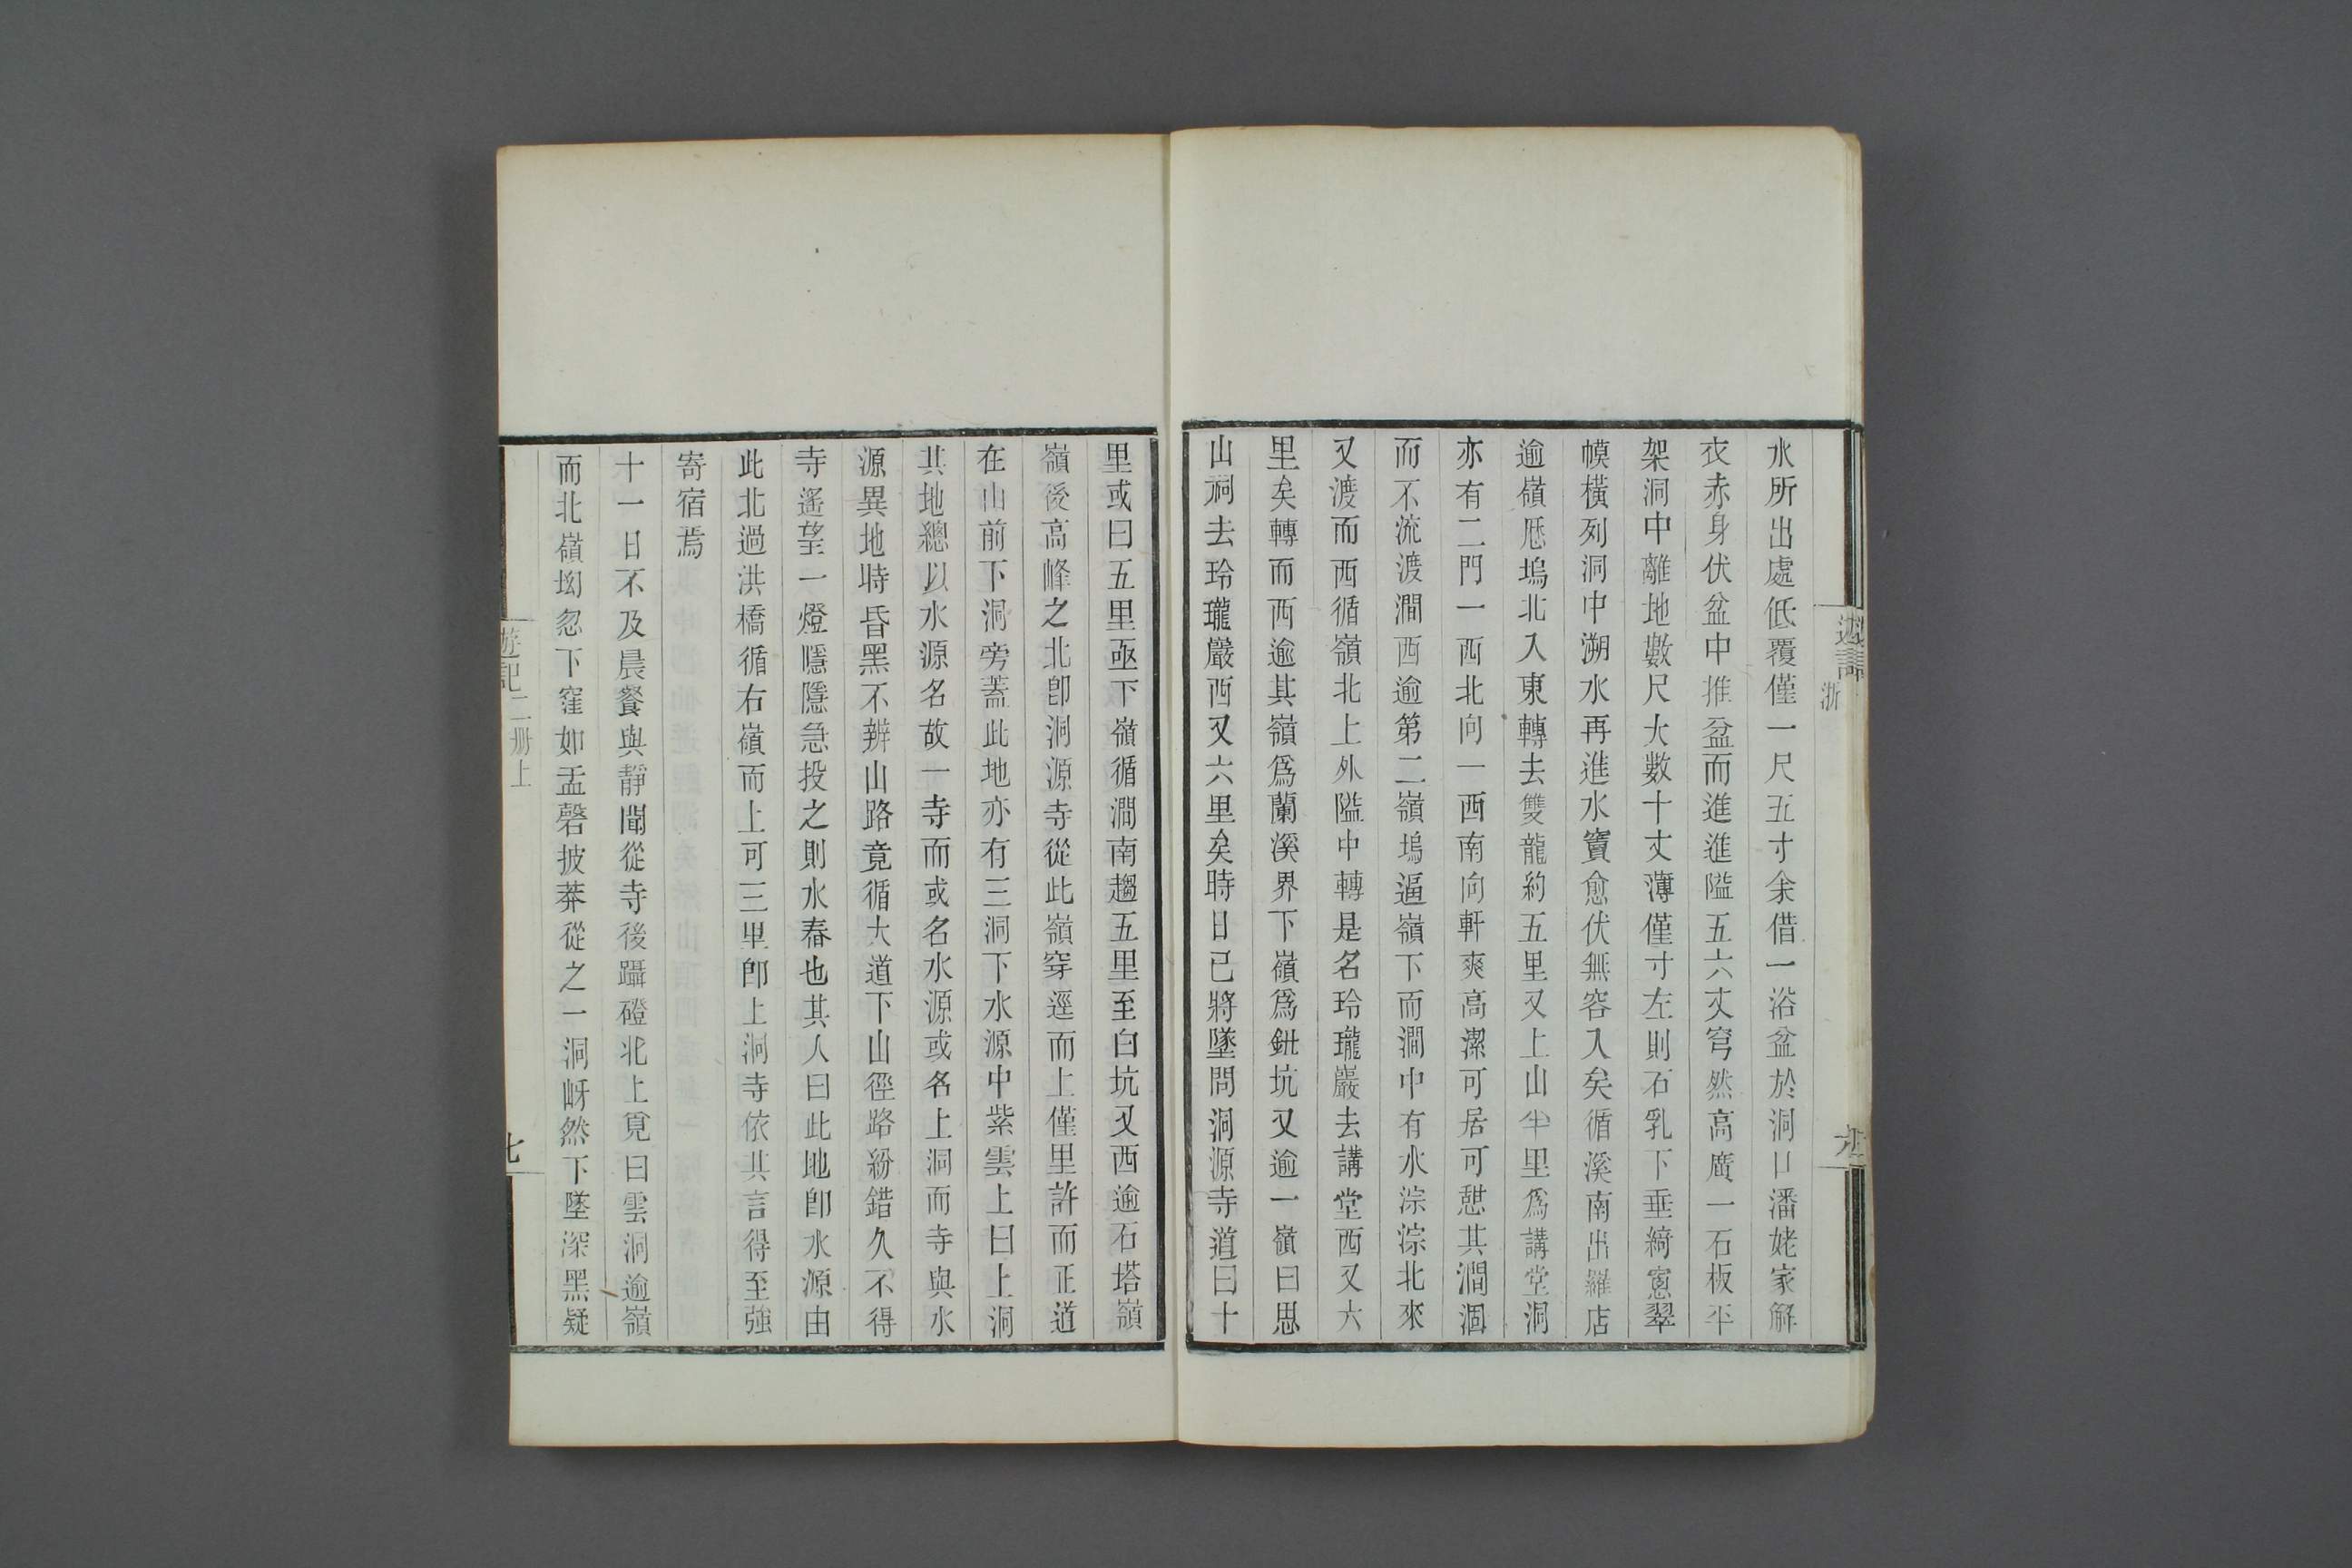 水所出處低覆僅一尺五寸余借一浴盆於洞口潘姥家解
衣赤身伏盆中推盆而進進隘五六丈穹然高廣一石板平
架洞中離地數尺大數十丈薄僅寸左則石乳下垂綺窻翠
幙橫列洞中溯水再進水竇愈伏無容入矣循溪南出羅店
逾嶺厯塢北入東轉去雙龍約五里又上山半里爲講堂洞
亦有二門一西北向一西南向軒爽高潔可居可憇其澗涸
而不流渡澗西逾第二嶺塢逼嶺下而澗中有水淙淙北來
又渡而西循嶺北上外隘中轉是名玲瓏巖去講堂西又六
里矣轉而西逾其嶺爲蘭溪界下嶺爲鈕坑又逾一嶺曰思
山祠去玲瓏巖西又六里矣時日已將墜問洞源寺道曰十
里或曰五里亟下嶺循澗南趨五里至白坑又西逾石塔嶺
嶺後高峰之北卽洞源寺從此嶺穿逕而上僅里許而正道
在山前下洞旁蓋此地亦有三洞下水源中紫雲上曰上洞
其地總以水源名故一寺而或名水源或名上洞而寺與水
源異地時昏黑不辨山路竟循大道下山徑路紛錯久不得
寺遙望一燈隱隱急投之則水舂也其人曰此地卽水源由
此北過洪橋循右嶺而上可三里卽上洞寺依其言得至強
寄宿焉
十一日不及晨餐與靜聞從寺後躡磴北上覓曰雲洞逾嶺
而北嶺坳忽下窪如盂磬披莽從之一洞岈然下墜深黑疑
遊記二册上
七